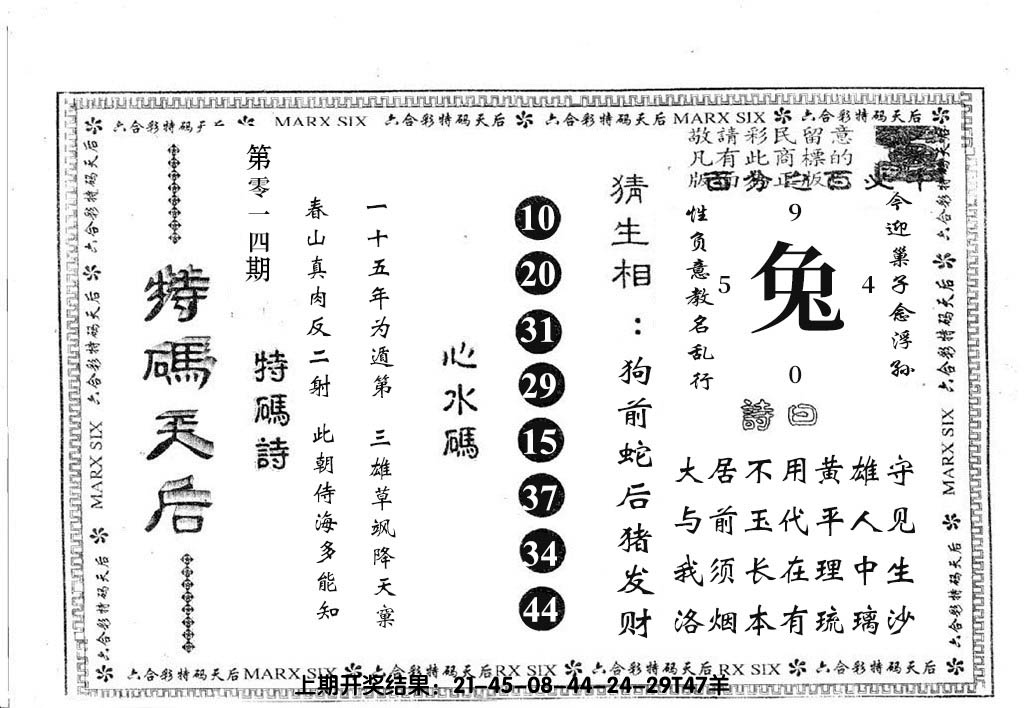 六合彩特码天后 MARX SIX 六合彩特码天后 六合彩特码天后 MARX SIX 六合彩特码天后
敬請彩民留意
凡有此商標的
版面为正版
今迎巢子念浮孙
9
5 兔 4
0
性负意教名乱行
詩曰
大居不用黄雄守
与前玉代平人见
我须长在理中生
洛烟本有琉璃沙
猜生相：狗前蛇后猪发财
10
20
31
29
15
37
34
44
心水碼
一十五年为遁第 三雄草飒降天禀
春山真肉反二射 此朝侍海多能知
特碼詩
第零一四期
特碼天后
六合彩特码天后 六合彩特码天后 MARX SIX 六合彩特码天后
六合彩特码天后 六合彩特码天后 MARX SIX 六合彩特码天后
六合彩特码天后 MARX SIX 六合彩特码天后 RX SIX 六合彩特码天后 RX SIX 六合彩特码天后
上期开奖结果：21-45-08-44-24-29T47羊